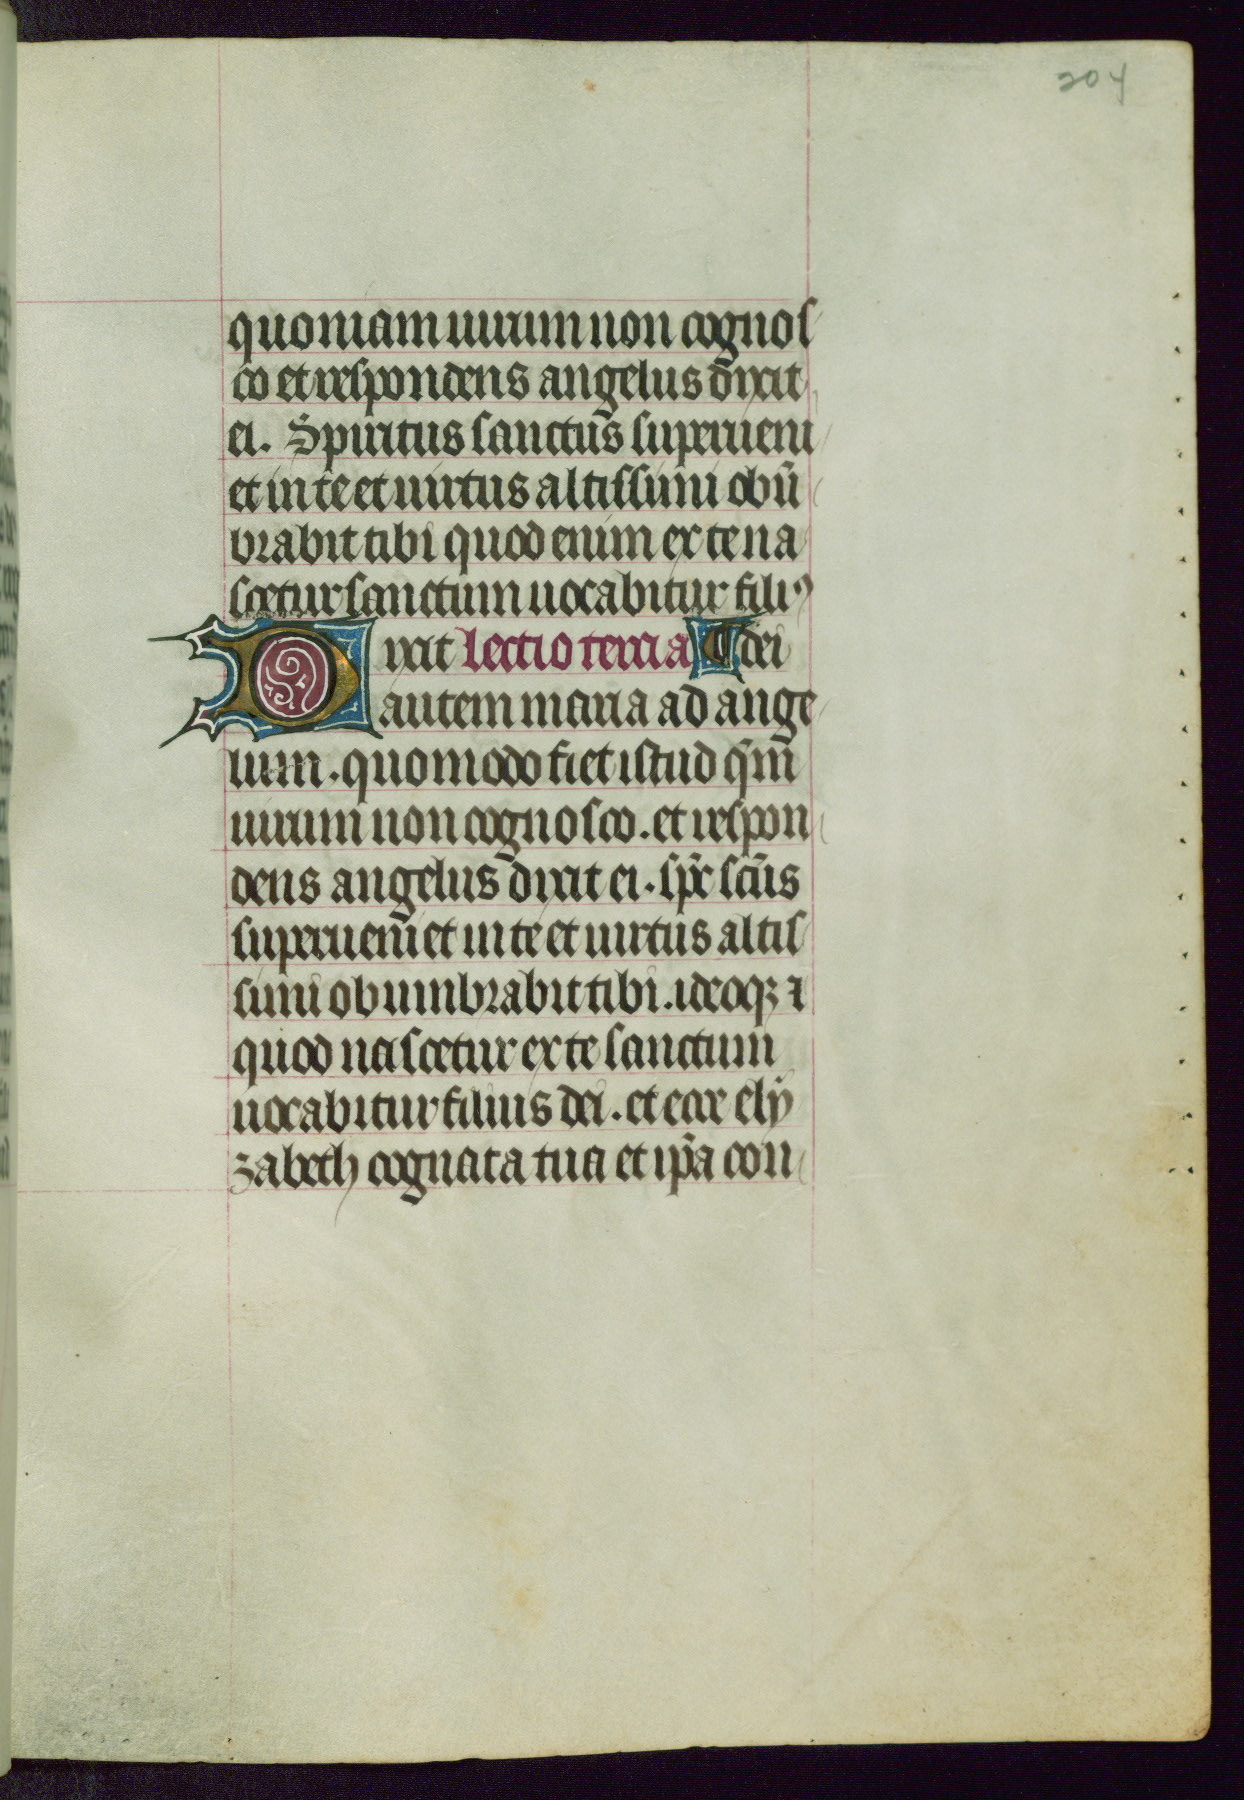 204
quoniam uirum non cognos
co et respondens angelus dixit
ei. Spiritus sanctus superueni
et in te et uirtus altissimi obū
brabit tibi quod enim ex te na
scetur sanctum uocabitur filiꝰ
Dixit Lectio tercia ¶ dei
autem maria ad ange
lum. quomodo fiet istud qm̄
uirum non cognosco. et respon
dens angelus dixit ei. sp̄c sc̄us
superueniet in te et uirtus altis
simi obumbrabit tibi. ideoqꝫ ⁊
quod nascetur ex te sanctum
uocabitur filius dei. et ecce ely
zabeth cognata tua et ip̄a con